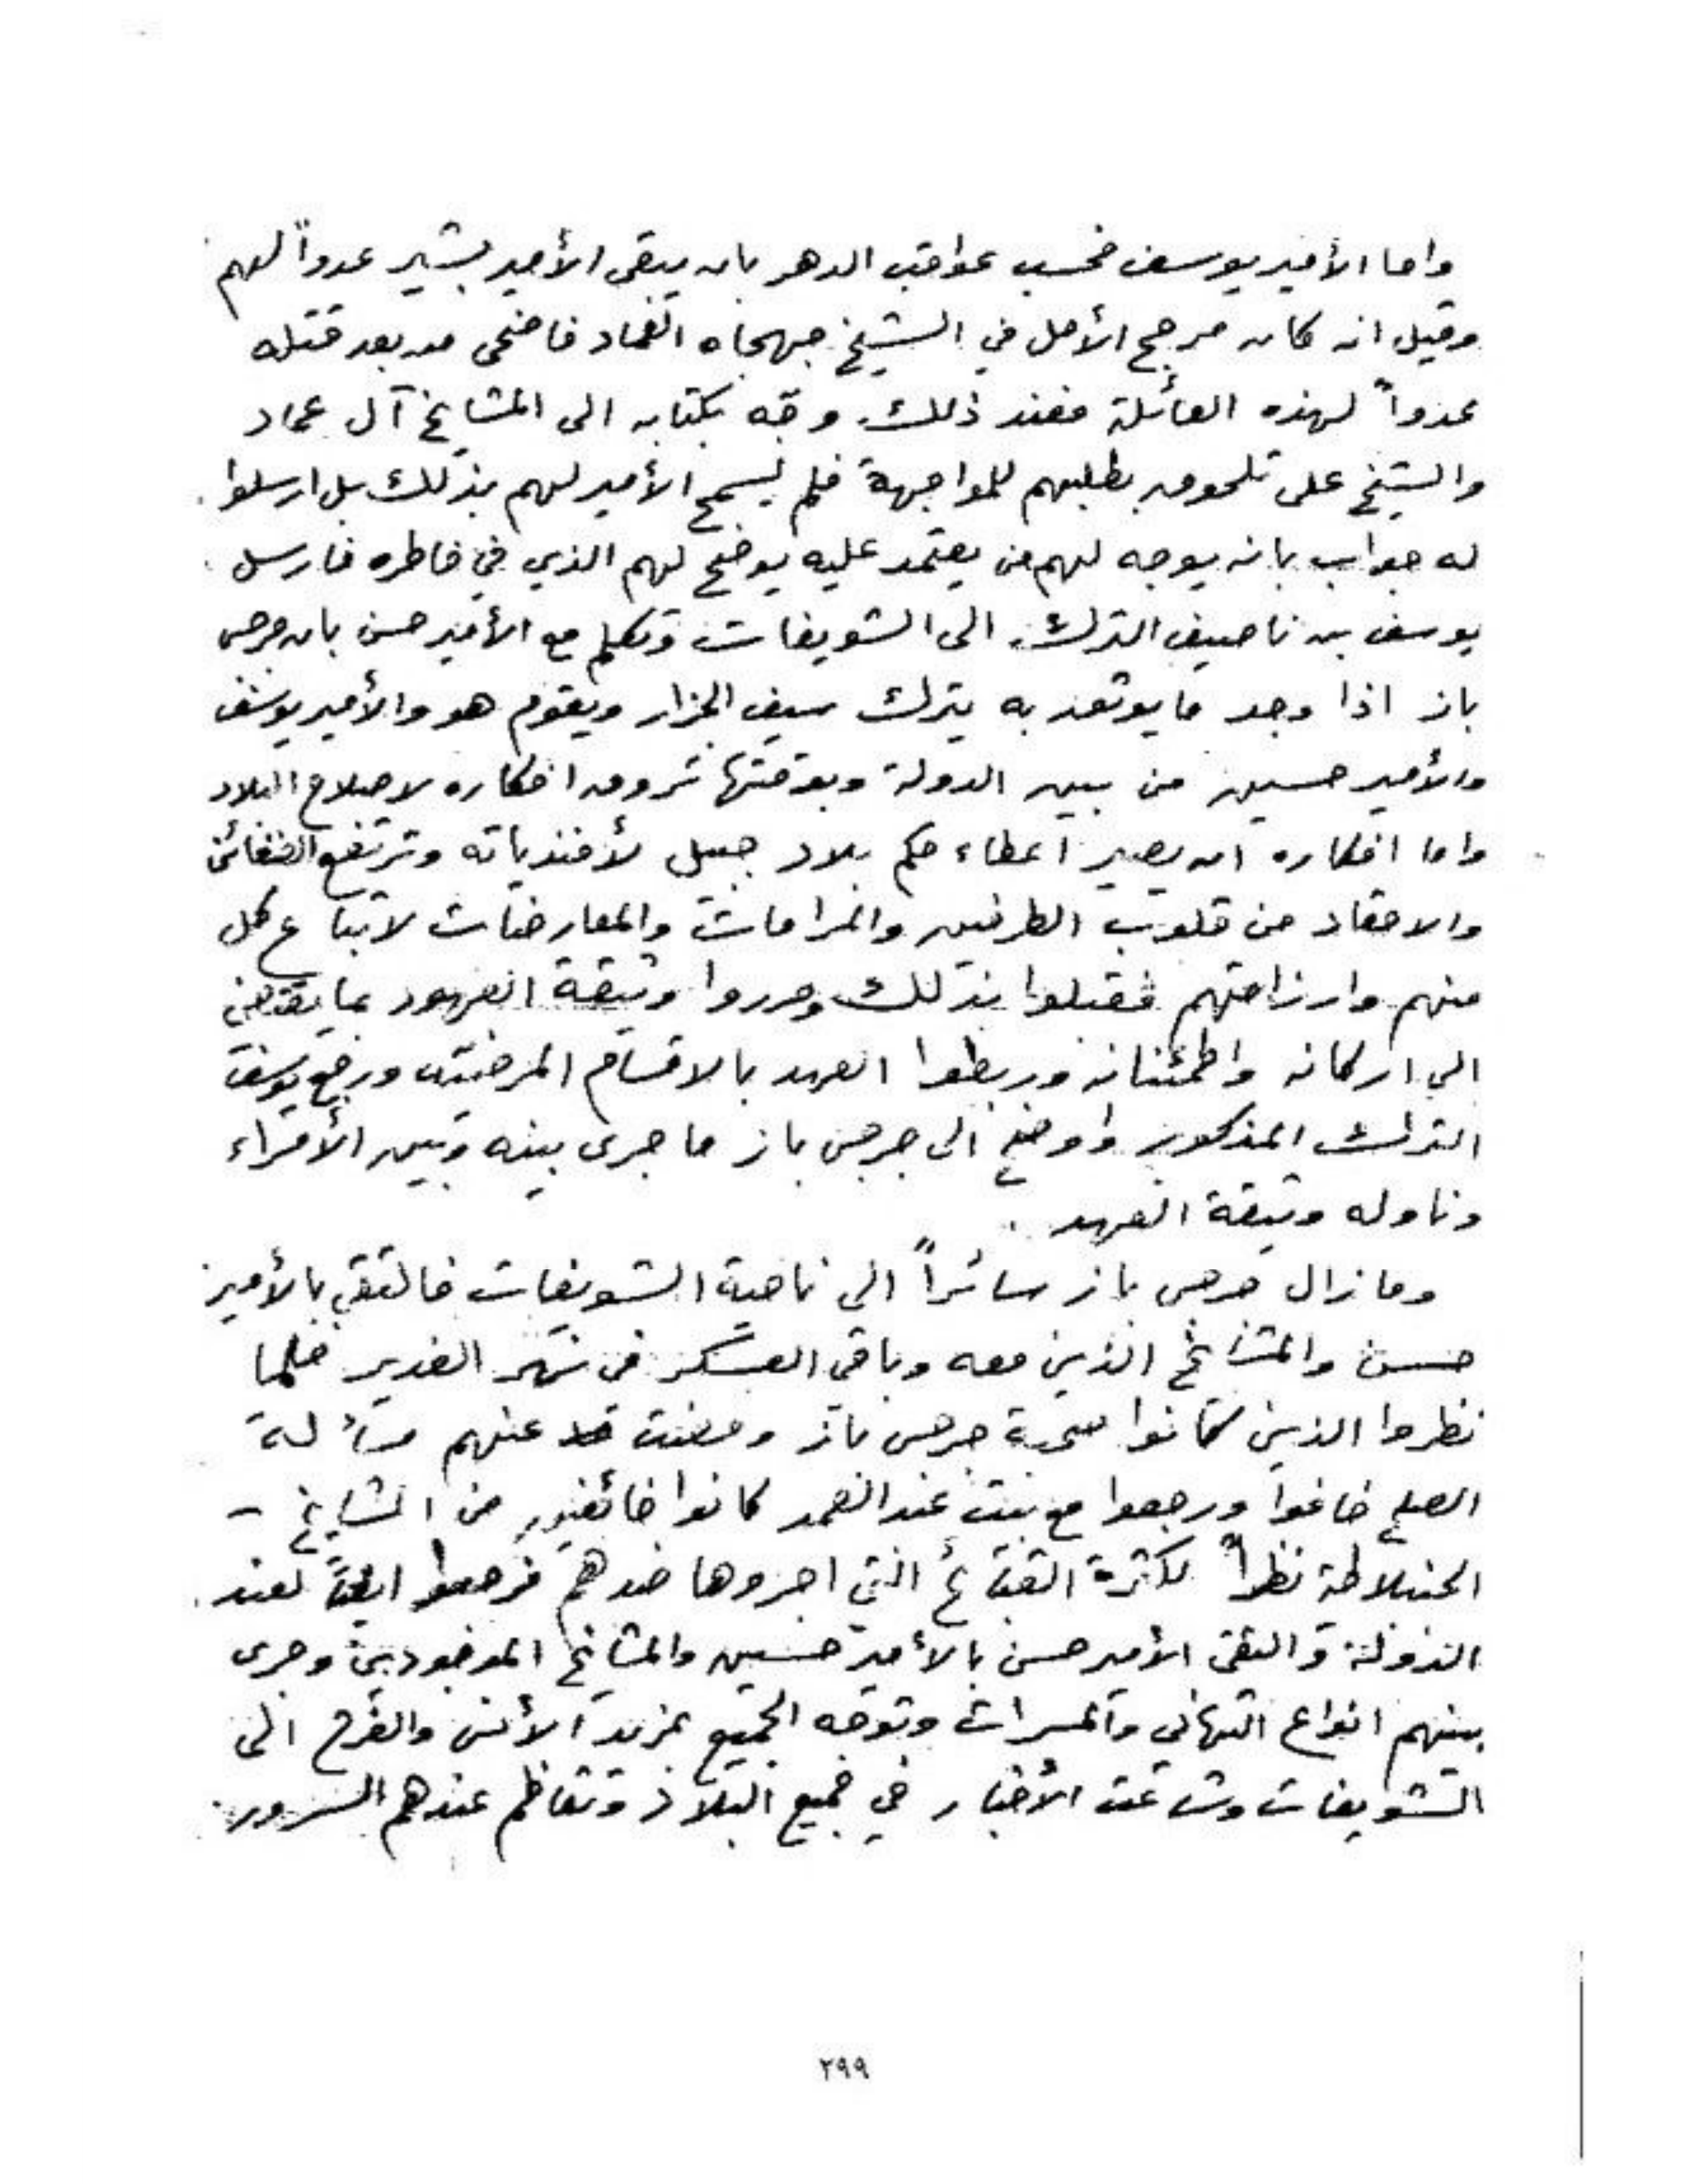 واما الأمير يوسف فحسب عواقب الدهر بان يبقى الأمير بشير عدواً لهم
وقيل انه كان مرجح الأمل في الشيخ جهجاه العماد فاضحى من بعد قتله
عدواً لهذه العائلة فعند ذلك وجّه بكتابه الى المشايخ آل عماد
والشيخ على تلحوق بطلبهم للمواجهة فلم يسمح الأمير لهم بذلك بل ارسلوا
له جواب بانه يوجه لهم من يعتمد عليه يوضح لهم الذي في خاطره فارسل
يوسف بن ناصيف الترك الى الشويفات وتكلم مع الأمير حسن بان جرجس
باز اذا وجد ما يوثق به يترك سيف الجزار ويقوم هو والأمير يوسف
والأمير حسين من بين الدولة وبوقتها تروق افكاره لاصلاح البلاد
واما افكاره ان يصير اعطاء حكم بلاد جبيل لأفندياته وترتفع الضغائن
والاحقاد من قلوب الطرفين والمرامات والمعارضات لاتباع كل
منهم وارزاقهم فقبلوا بذلك وحرروا وثيقة العهود بما يقتضي
الى اركانه واطمئنانه وربطوا العهد بالاقسام المرضية ورجع يوسف
الترك المذكور واوضح الى جرجس باز ما جرى بينه وبين الأمراء
وناوله وثيقة العهد .
وما زال جرجس باز سائراً الى ناحية الشويفات فالتقى بالأمير
حسن والمشائخ الذين معه وباقي العسكر في نهر الغدير فلما
نظروا الذين كانوا صحبة جرجس باز ومضت عنهم مسألة
الصلح خافوا ورجعوا مع بنت عند الصمد كانوا خائفين من المشايخ -
الجنبلاطة نظراً لكثرة القبائح التي اجروها ضدهم فرجعوا ايضاً لعند
الدولة والتقى الأمير حسن بالأمير حسين والمشائخ الموجودين وجرى
بينهم انواع التهاني والمسرات وتوجه الجميع بمزيد الأنس والفرح الى
الشويفات وشاعت الأخبار في جميع البلاد وتعاظم عندهم السرور
٢٩٩